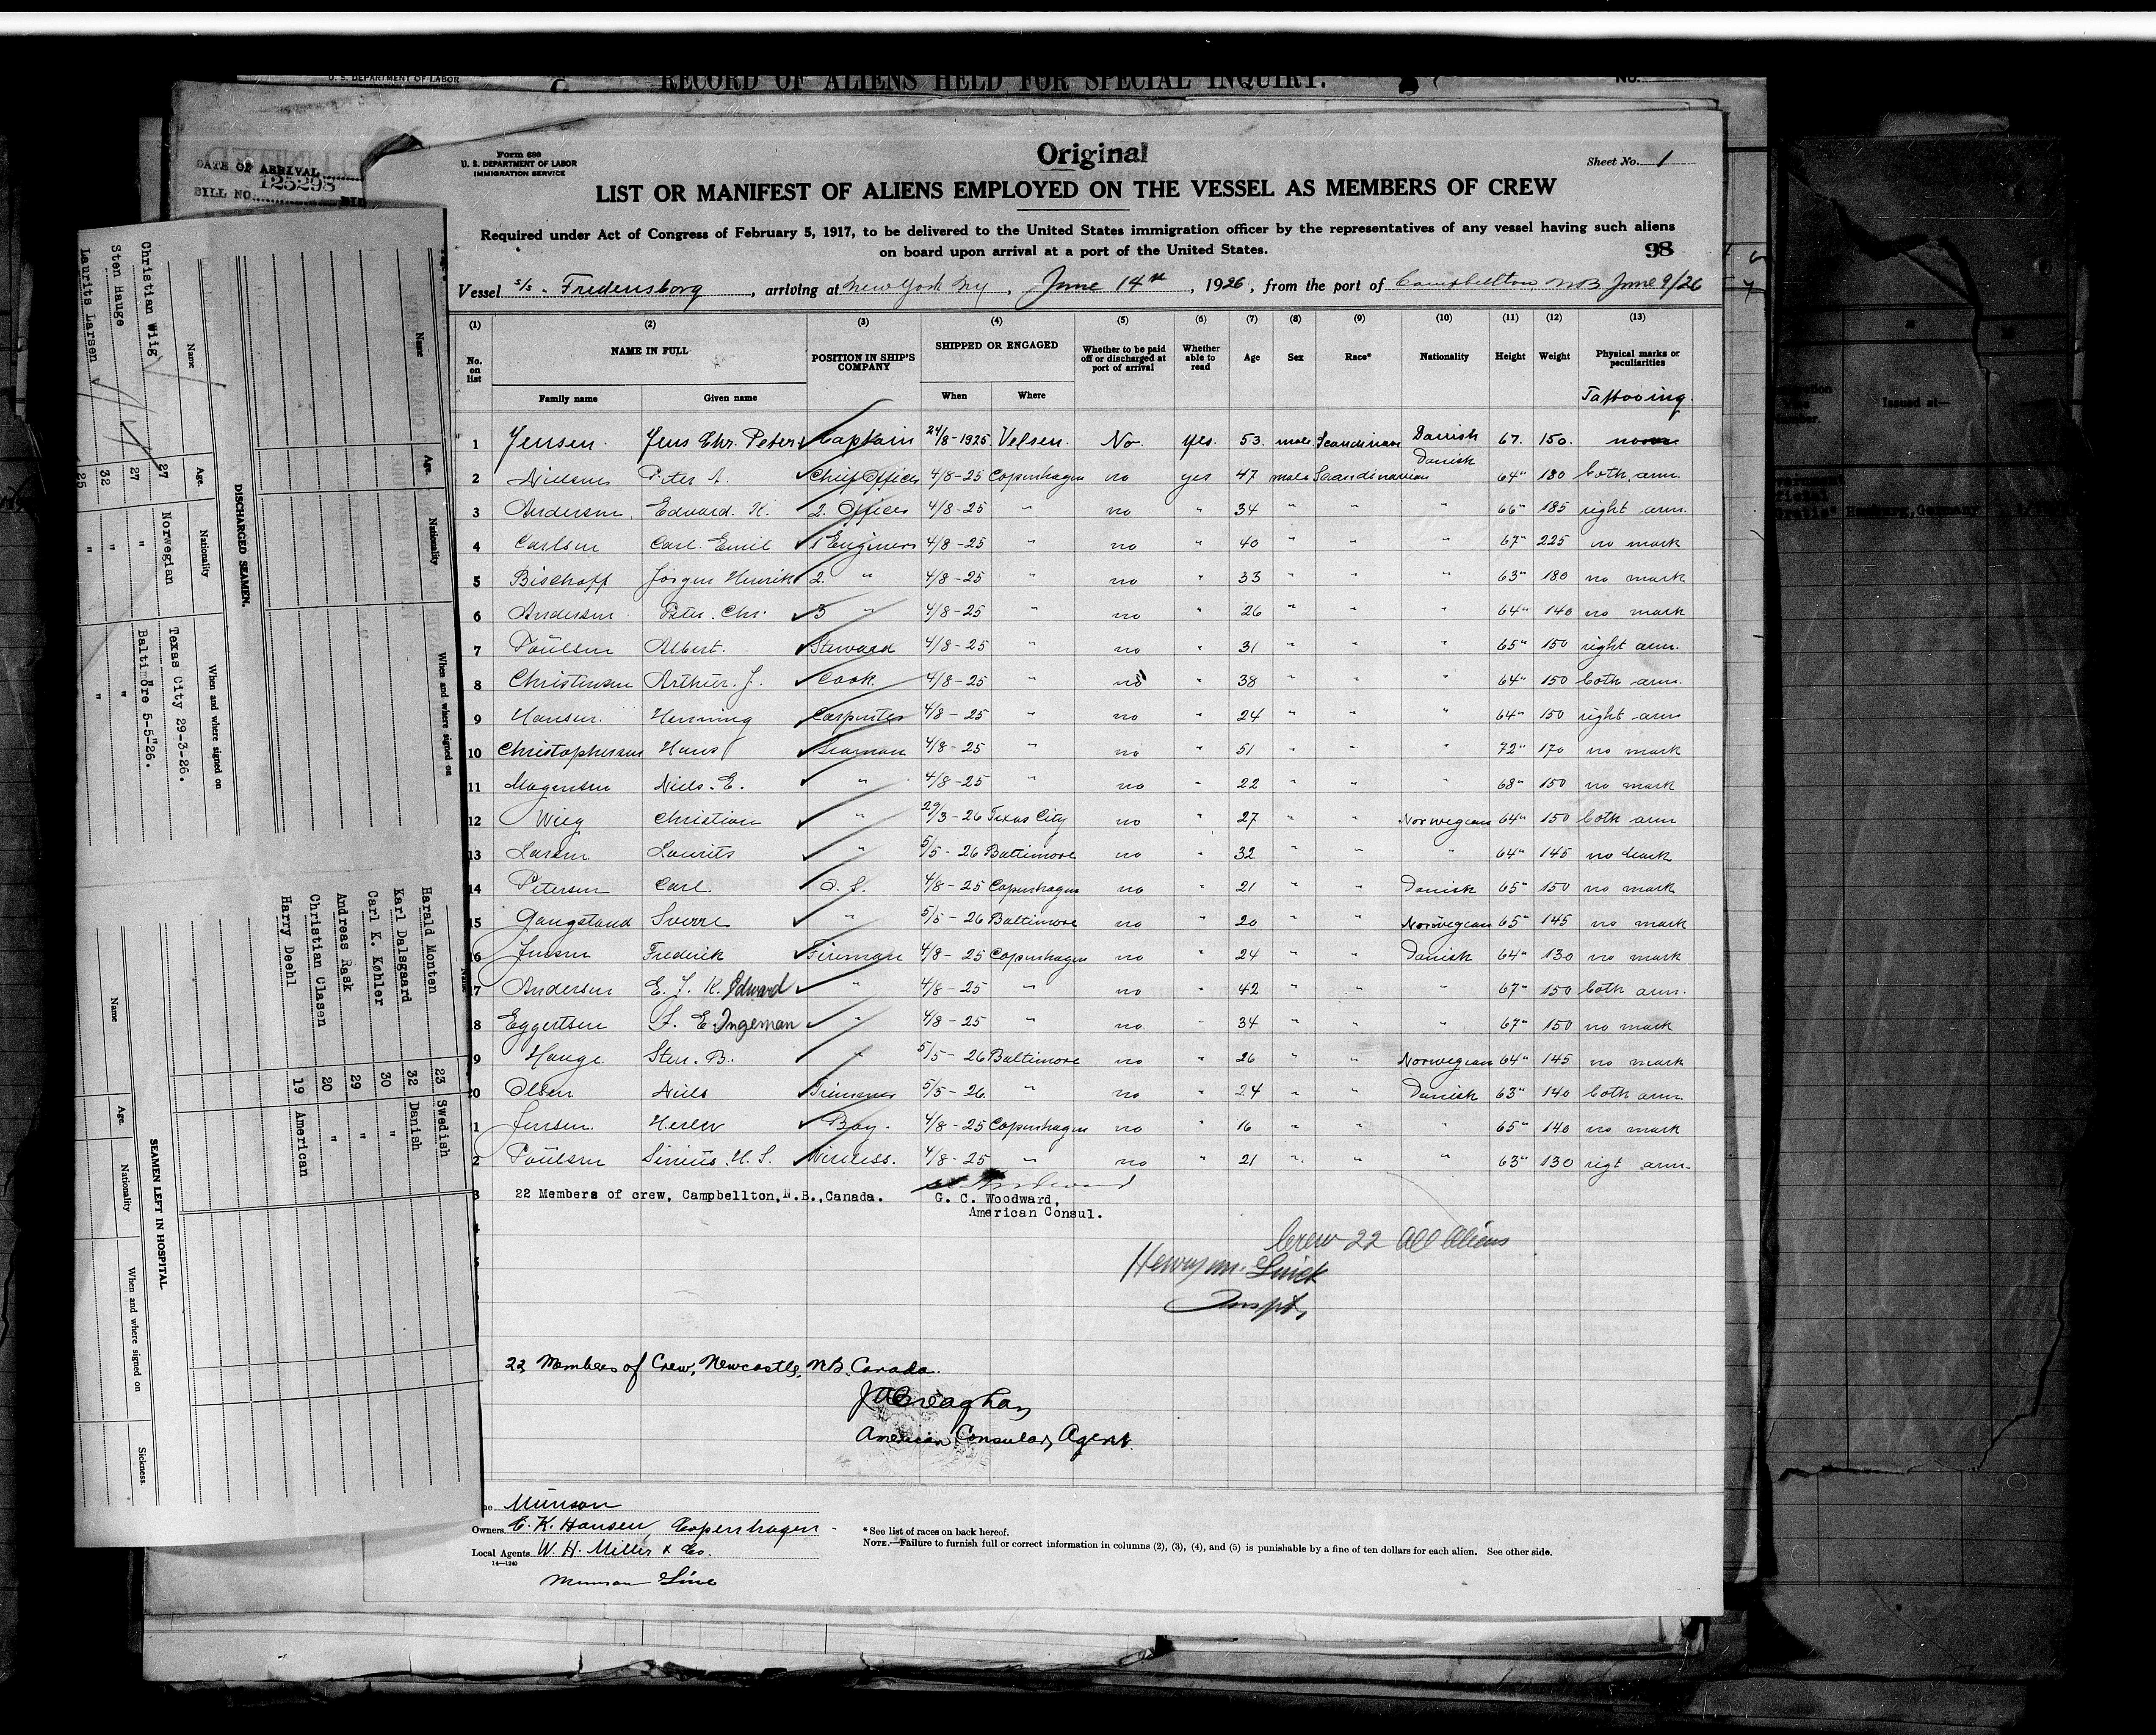 U. S. DEPARTMENT OF LABOR
RECORD OF ALIENS HELD FOR SPECIAL INQUIRY.
No.
DATE OF ARRIVAL
125298
BILL NO.
Form 680
U. S. DEPARTMENT OF LABOR
IMMIGRATION SERVICE
Original
Sheet No. 1
LIST OR MANIFEST OF ALIENS EMPLOYED ON THE VESSEL AS MEMBERS OF CREW
Required under Act of Congress of February 5, 1917, to be delivered to the United States immigration officer by the representatives of any vessel having such aliens
on board upon arrival at a port of the United States.
98
Vessel s/s. Fredensborg, arriving at New York Ny, June 14th, 1926, from the port of Campbellton N.B. June 9/26
(1) (2) (3) (4) (5) (6) (7) (8) (9) (10) (11) (12) (13)
No. on list NAME IN FULL POSITION IN SHIP'S COMPANY SHIPPED OR ENGAGED Whether to be paid off or discharged at port of arrival Whether able to read Age Sex Race* Nationality Height Weight Physical marks or peculiarities
Family name Given name When Where Tattooing.
1 Jensen. Jens Chr. Peter Captain 24/8-1925. Velsen. No. yes. 53. male. Scandinavian Danish 67. 150.
2 Nielsen Peter A. Chief Officer 4/8-25 Copenhagen no yes 47 male Scandinavian Danish 64" 180 both arm.
3 Andersen Edvard. K. 2. Officer 4/8-25 " no " 34 " " " 66" 185 right arm.
4 Carlsen Carl. Emil 1 Engineer 4/8-25 " no " 40 " " " 67" 225 no mark
5 Bischoff Jörgen Henrik 2 " 4/8-25 " no " 33 " " " 63" 180 no mark
6 Andersen Peter. Chr. 3 " 4/8-25 " no " 26 " " " 64" 140 no mark
7 Poulsen Albert. Steward 4/8-25 " no " 31 " " " 65" 150 right arm.
8 Christensen Arthur. J. Cook. 4/8-25 " no " 38 " " " 64" 150 both arm.
9 Hansen. Henning Carpenter 4/8-25 " no " 24 " " " 64" 150 right arm
10 Christophersen Hans Seaman 4/8-25 " no " 51 " " " 72" 170 no mark
11 Mogensen Niels. E. " 4/8-25 " no " 22 " " " 68" 150 no mark
12 Wieg Christian " 29/3-26 Texas City no " 27 " " Norwegian 64" 150 both arm
13 Larsen Lourits " 5/5-26 Baltimore no " 32 " " " 64" 145 no mark
14 Petersen Carl. O. S. 4/8-25 Copenhagen no " 21 " " Danish 65" 150 no mark
15 Gangstand Sverre " 5/5-26 Baltimore no " 20 " " Norwegian 65" 145 no mark
16 Jensen Frederik Fireman 4/8-25 Copenhagen no " 24 " " Danish 64" 130 no mark
17 Andersen E. J. K. Edward " 4/8-25 " no " 42 " " " 67" 150 both arm.
8 Eggertsen F. E. Ingeman " 4/8-25 " no. " 34 " " " 67" 150 no mark
9 Hauge. Sten. B. " 5/5-26 Baltimore no " 26 " " Norwegian 64" 145 no mark
0 Olsen Niels Trimmer 5/5-26. " no " 24 " " Danish 63" 140 both arm
1 Jensen. Boy. 4/8-25 Copenhagen no " 16 " " " 65" 140 no mark
2 Poulsen Sinius. H. S. Wireless. 4/8-25 " no " 21 " " " 63" 130 rigt arm.
3 22 Members of crew, Campbellton, N.B., Canada. G. C. Woodward,
American Consul.
Crew 22 All Aliens
Henry M.
Inspt,
22 Members of Crew, Newcastle, N.B. Canada.
J A Creaghan
American Consular Agent.
Munson
Owners C. K. Hansen, Copenhagen
Local Agents W. H. Miller & Co.
14—1240
Munson Line
* See list of races on back hereof.
NOTE.—Failure to furnish full or correct information in columns (2), (3), (4), and (5) is punishable by a fine of ten dollars for each alien. See other side.
DISCHARGED SEAMEN.
Name Age. Nationality When and where signed on
Christian Wiig 27 Norwegian Texas City 29-3-26.
Sten Hauge 27 " Baltimore 5-5-26.
Laurits Larsen 32 " "
25 " "
Name Age. Nationality When and where signed on
Harald Monten 23 Swedish
Karl Dalsgaard 32 Danish
Carl K. Køhler 30 "
Andreas Rask 29 "
Christian Clasen 20 "
Harry Deehl 19 American
SEAMEN LEFT IN HOSPITAL
Name Age. Nationality When and where signed on Sickness.
Issued at—
Hamburg, Germany